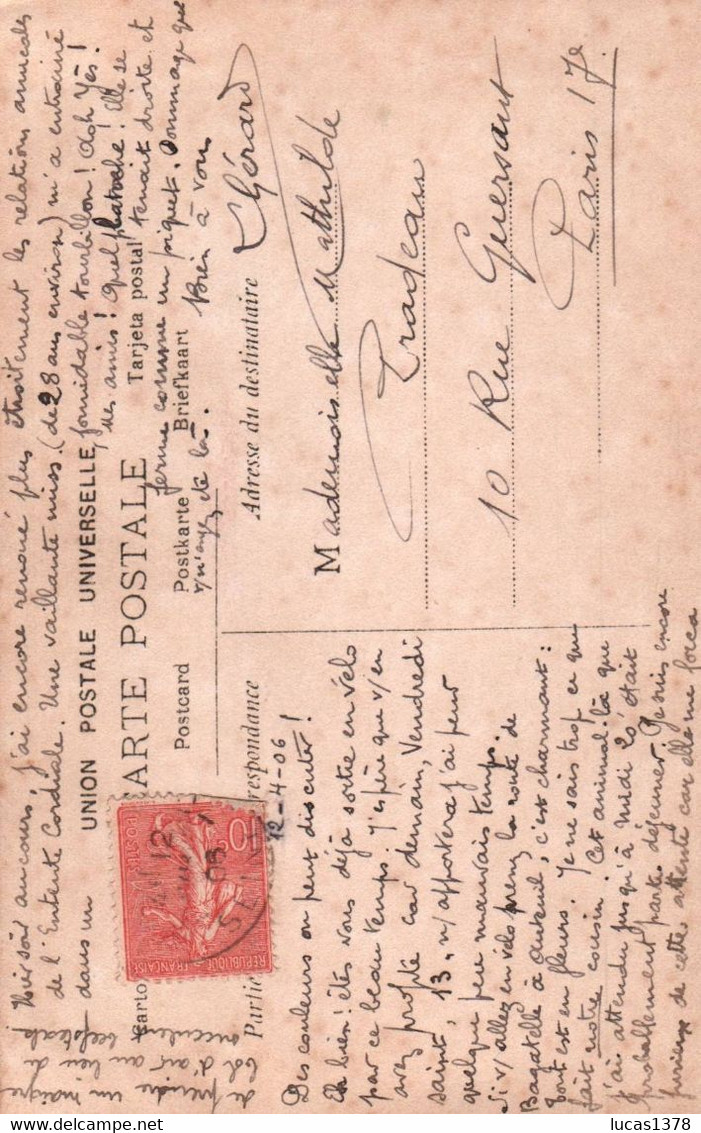 Hier soir au cours, j'ai encore renoué plus étroitement les relations amicales
de l'Entente Cordiale. Une vaillante miss (de 28 ans environ) m'a entraîné
dans un formidable tourbillon! Aoh Yès!
mes amis! Quel phatoche! Elle se
tenait droite et
ferme comme un piquet. Dommage que
v/ n'ayez été là. Bien à vous
Gérard
UNION POSTALE UNIVERSELLE
CARTE POSTALE
Tarjeta postal
Postcard Postkarte Briefkaart
Carto
Partie respondance
Adresse du destinataire
12-4-06
10
POSTES
RÉPUBLIQUE FRANÇAISE
SEINE
12
Mademoiselle Mathilde
Pradeau
10 Rue Guersant
Paris 17e
Des couleurs on peut discuter!
Eh bien! êtes vous déjà sortie en vélo
par ce beau temps; j'espère que v/ en
avez profité car demain, Vendredi
saint, 13, v/ apportera j'ai peur
quelque peu mauvais temps.
Si v/ allez en vélo prenez la route de
Bagatelle à Auteuil, c'est charmant:
tout est en fleurs. Je ne sais trop ce que
fait notre cousin. Cet animal-là que
j'ai attendu jusqu'à midi 20 était
probablement parti déjeuner. Je suis encore
furieux de cette attente car elle me força
de prendre un maigre
bol d'air au lieu de
succulents beefsteaks
lucas1378